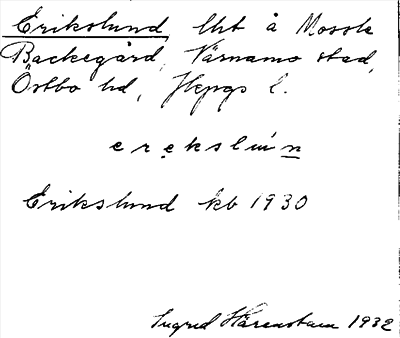 Erikslund, lht å Mossle
Backegård, Värnamo stad,
Östbo hd, Jkpgs l.
erekslún
Erikslund kb 1930
Ingrid Härenstam 1932